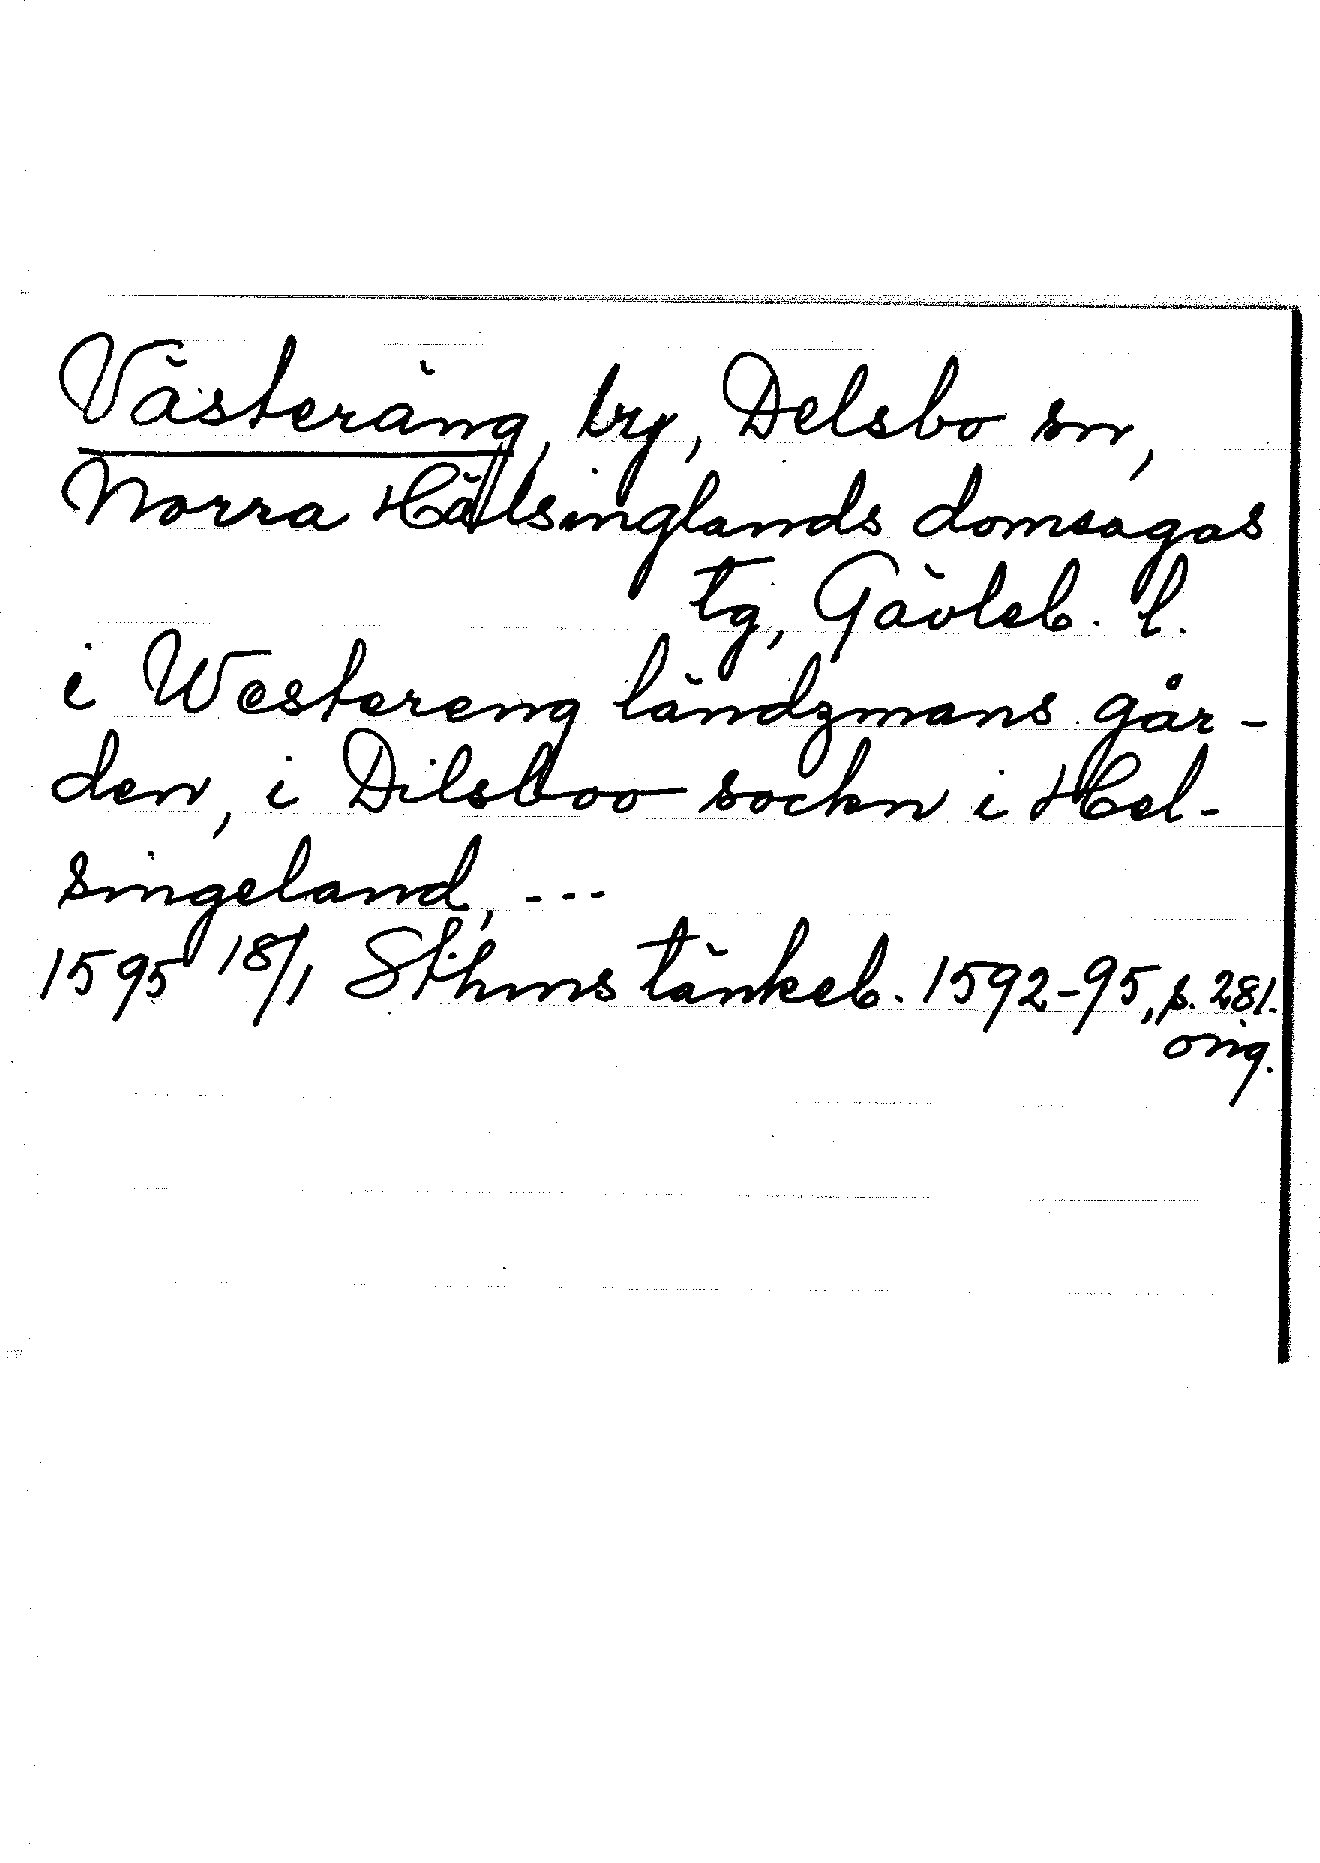 Västeräng, by, Delsbo sn,
Norra Hälsinglands domsagas
tg, Gävleb. l.
i Westereng ländzmans går-
den, i Dilsboo sockn i Hel-
singeland, ---
1595 18/1 Sthms tänkeb. 1592-95, s. 281.
orig.